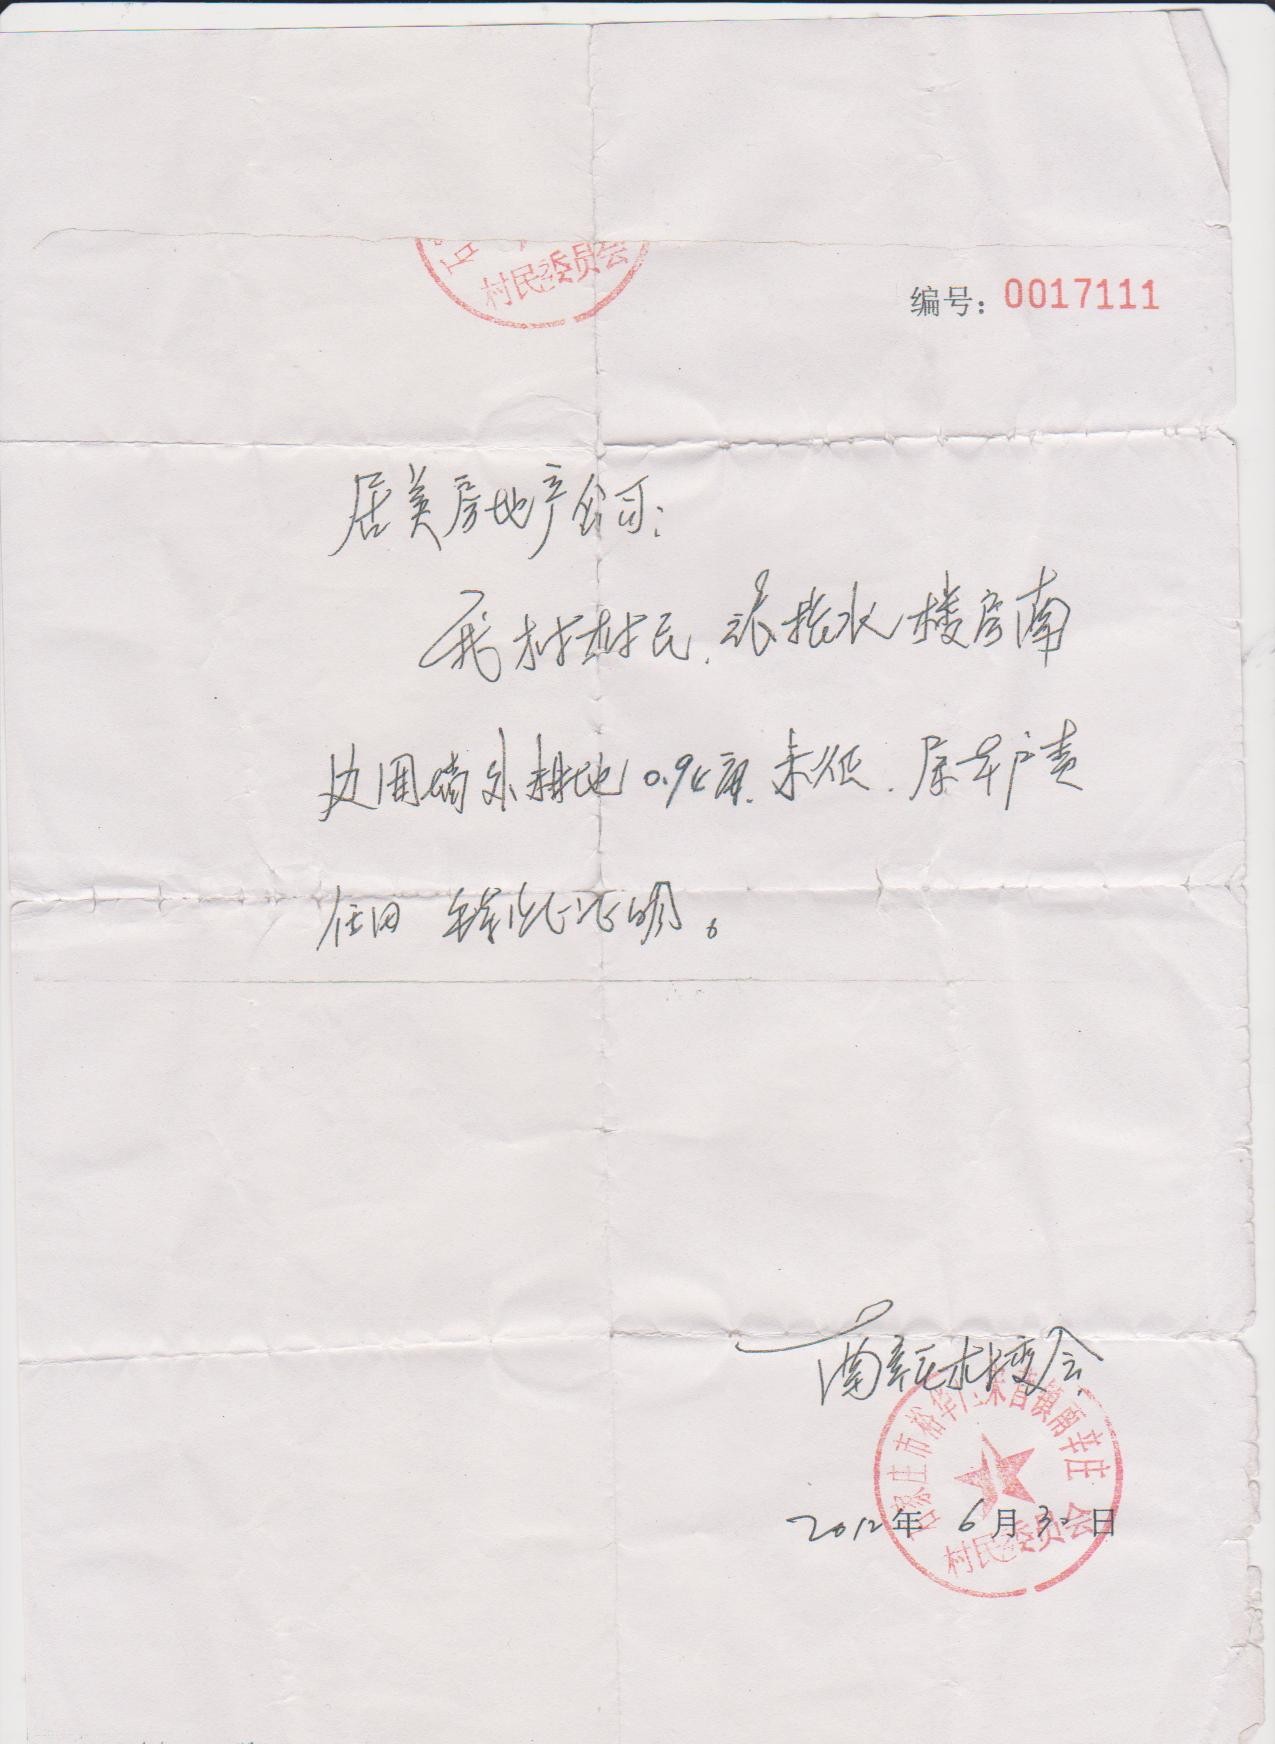 村民委员会
编号：0017111
居美房地产公司：
我村村民，张拴水楼房南
边围墙外耕地0.94亩，未征，属本户责
任田 特此证明。
南辛庄村委会
石家庄市裕华区宋营镇南辛庄
村民委员会
2012年 6月30日